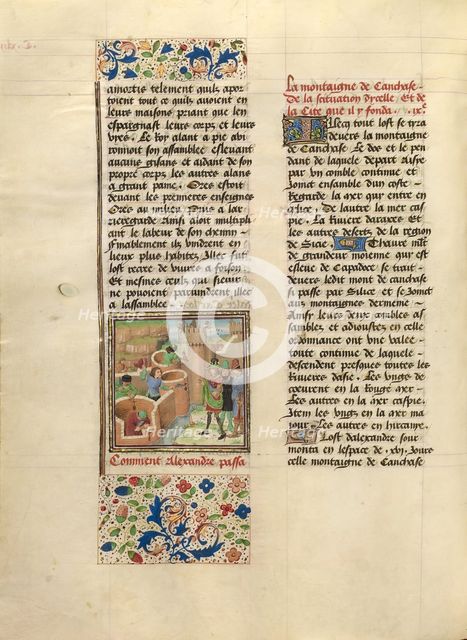 amortie telement quilz apor
toient tout ce quilz auoient en
leurs maisons priant que len
espargnast leurs corps et leurs
vies. Le Roy alant a pie abi
ronnoit son assamblee esleuant
aucuns gisans et aidant de son
propre corps les autres alans
a grant paine. Ores estoit
deuant les premieres enseignes
Ores au milieu Puis a lar
rieregarde Ainsi aloit multipli
ant le labeur de son chemin
Finablement ilz vindrent en
lieux plus habitez Illec fut
lost recree de viures a foison
Et mesmes ceulx qui sieuir
ne pouoient paruindrent illec
a lassamblee
Comment Alexandre passa
La montaigne de Cauchase
De la situation dycelle Et de
la Cite que il y fonda. .ix.e
Illec tout lost se tra
deuers la montaigne
de Cauchase Le dos et le pen
dant de laquele depart Asye
par vn comble continue et
Joinct ensamble dun coste
Regarde la mer qui entre en
De lautre la mer cas
pie. La Riuiere daraxes Et
les autres desertz de la region
de Sicie. Thaure mōt
de grandeur moienne qui est
esleue de Capadoce se trait
deuers ledit mont de caucase
Si passe par Silice et se Joinct
aux montaignes dermenie
Ainsy leurs deux combles as
samblez et adioustez en celle
ordonnance ont vne valee
toute continue de laquele
descendent presques toutes les
Riuieres dasie. Les vngs de
coeurent en la Rouge mer
Les autres en la mer caspie.
Item les vngz en la mer ma
jour Les autres en hircanie.
Lost dalexandre sour
monta en lespace de .xvi. Jours
celle montaigne de Cauchase
Heritage
Heritage
Heritage
Heritage